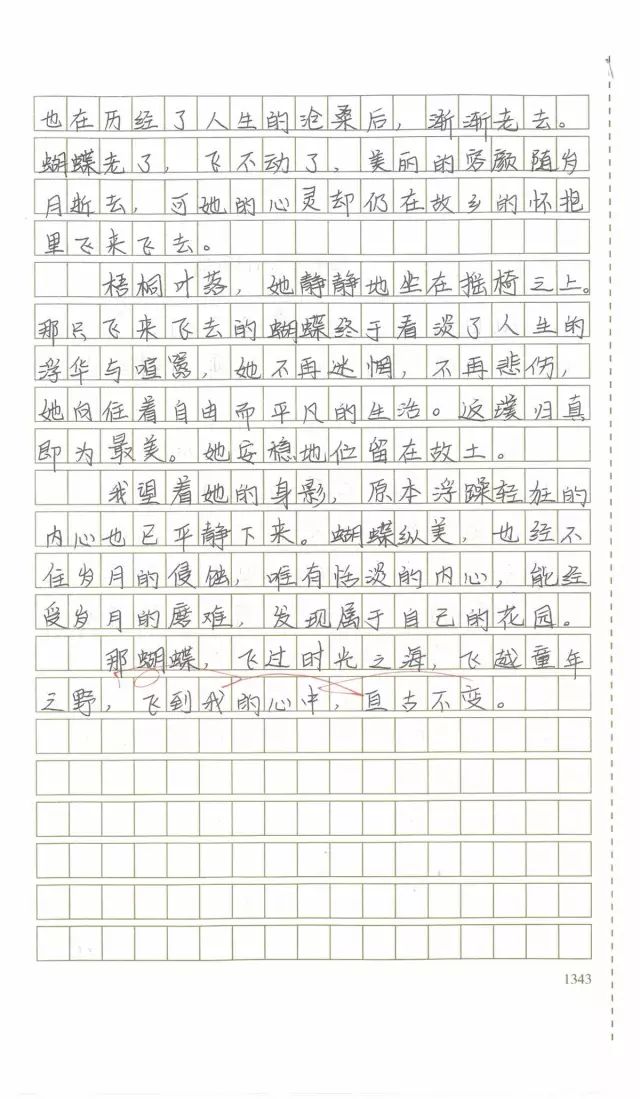 也在历经了人生的沧桑后，渐渐老去。
蝴蝶老了，飞不动了，美丽的容颜随岁
月逝去，可她的心灵却仍在故乡的怀抱
里飞来飞去。
梧桐叶落，她静静地坐在摇椅之上。
那只飞来飞去的蝴蝶终于看淡了人生的
浮华与喧嚣，她不再迷惘，不再悲伤，
她向往着自由而平凡的生活。返璞归真
即为最美。她安稳地伫留在故土。
我望着她的身影，原本浮躁轻狂的
内心也已平静下来。蝴蝶纵美，也经不
住岁月的侵蚀，唯有恬淡的内心，能经
受岁月的磨难，发现属于自己的花园。
那蝴蝶，飞过时光之海，飞越童年
之野，飞到我的心中，亘古不变。
1343